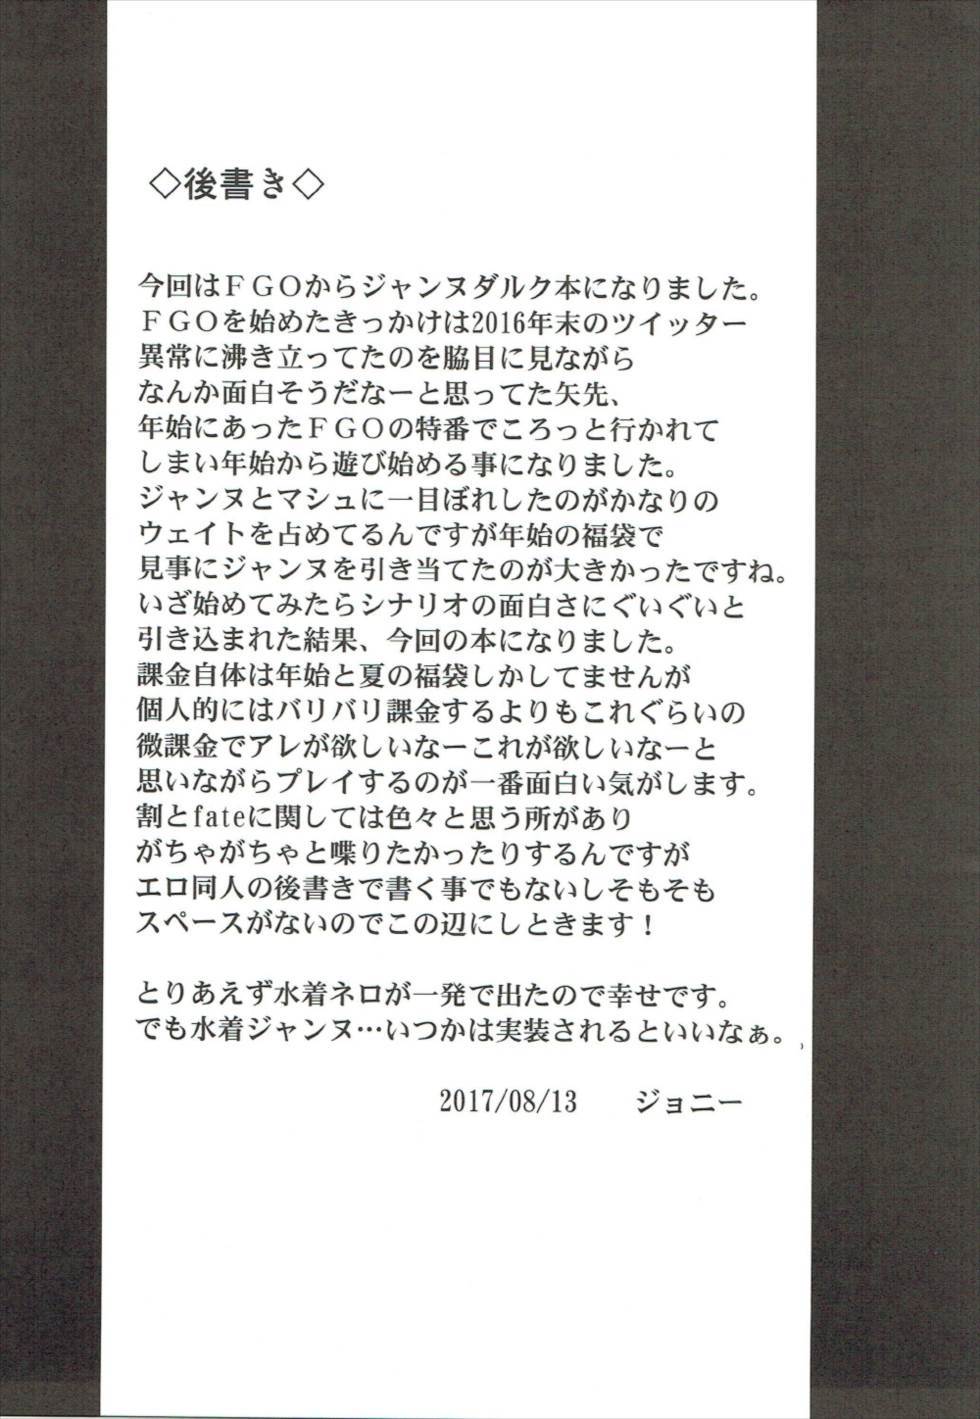 ◇後書き◇
今回はＦＧＯからジャンヌダルク本になりました。
ＦＧＯを始めたきっかけは2016年末のツイッター
異常に沸き立ってたのを脇目に見ながら
なんか面白そうだなーと思ってた矢先、
年始にあったＦＧＯの特番でころっと行かれて
しまい年始から遊び始める事になりました。
ジャンヌとマシュに一目ぼれしたのがかなりの
ウェイトを占めてるんですが年始の福袋で
見事にジャンヌを引き当てたのが大きかったですね。
いざ始めてみたらシナリオの面白さにぐいぐいと
引き込まれた結果、今回の本になりました。
課金自体は年始と夏の福袋しかしてませんが
個人的にはバリバリ課金するよりもこれぐらいの
微課金でアレが欲しいなーこれが欲しいなーと
思いながらプレイするのが一番面白い気がします。
割とfateに関しては色々と思う所があり
がちゃがちゃと喋りたかったりするんですが
エロ同人の後書きで書く事でもないしそもそも
スペースがないのでこの辺にしときます！
とりあえず水着ネロが一発で出たので幸せです。
でも水着ジャンヌ…いつかは実装されるといいなぁ。
2017/08/13　　ジョニー